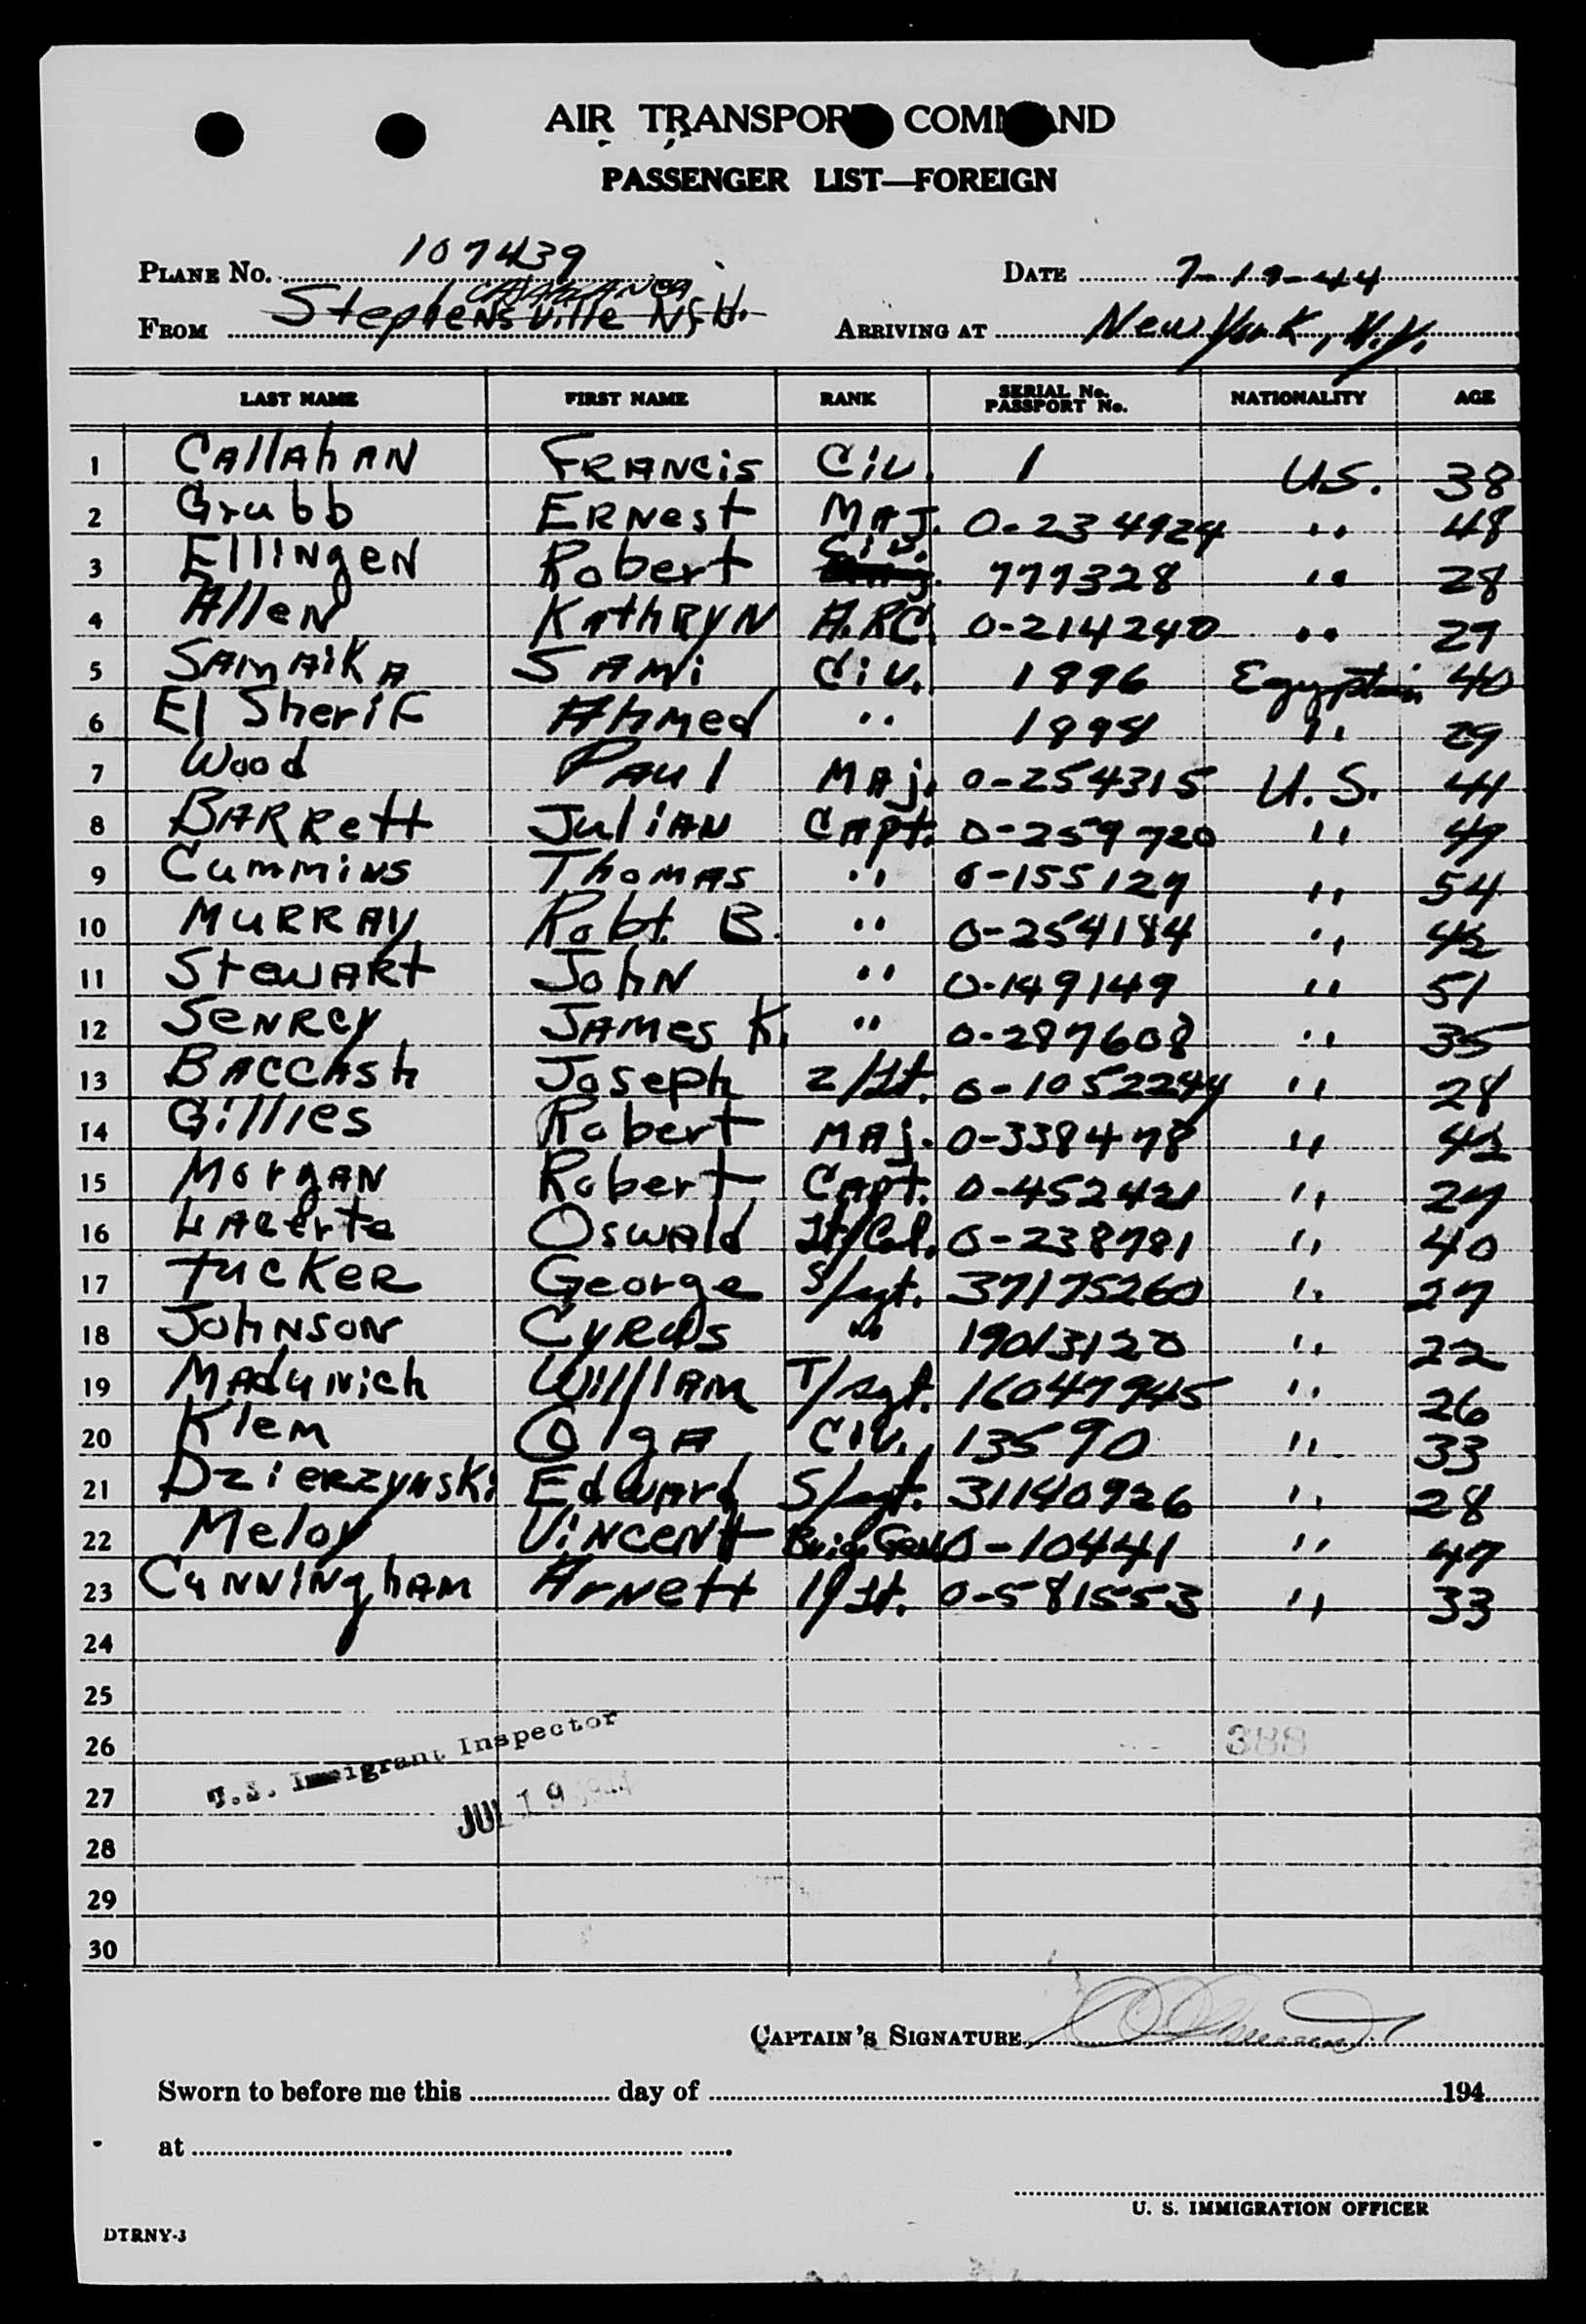 AIR TRANSPORT COMMAND
PASSENGER LIST—FOREIGN
PLANE NO. 107439 DATE 7-19-44
CASABLANCA
FROM Stephensville N.F.H. ARRIVING AT New York, N.Y.
LAST NAME FIRST NAME RANK SERIAL No. PASSPORT No. NATIONALITY AGE
1 CAllAhAN FRANCis Civ. 1 U.S. 38
2 Grubb ERNest MAJ. 0-234924 " 48
3 EllINgeN Robert Civ. 777328 " 28
4 AlleN KAthRYN A.RC. 0-214240 " 29
5 SAmAiKA SAMi Civ. 1896 Egyptain 40
6 El SheriF AhMed " 1898 " 29
7 Wood PAul MAj. 0-254315 U.S. 41
8 BARRett JuliAN CApt. 0-259720 " 49
9 CummiNs ThoMAS " 0-155129 " 54
10 MuRRAy Robt. B. " 0-254184 " 42
11 StewARt JohN " 0-149149 " 51
12 SeNRcy JAMes K. " 0-287608 " 35
13 BACCAsh Joseph 2/Lt. 0-1052244 " 28
14 Gillies Robert MAj. 0-338478 " 42
15 MorgAN Robert CApt. 0-452421 " 27
16 LACerte OswAld Lt/Col. 0-238781 " 40
17 tucKeR George S/sgt. 37175260 " 27
18 JohNSON CyRus " 19013120 " 22
19 MAduNich WillIAM T/sgt. 16047945 " 26
20 Klem OlgA Civ. 13590 " 33
21 DzieRzyNsKi EdwArd S/sgt. 31140926 " 28
22 Meloy ViNceNt Brig Gen 0-10441 " 47
23 CuNNiNghAM ArNett 1/Lt. 0-581553 " 33
24
25
26 388
27
U.S. Immigrant Inspector
JUL 19 1944
28
29
30
CAPTAIN'S SIGNATURE
Sworn to before me this day of 194
at
U. S. IMMIGRATION OFFICER
DTRNY-3